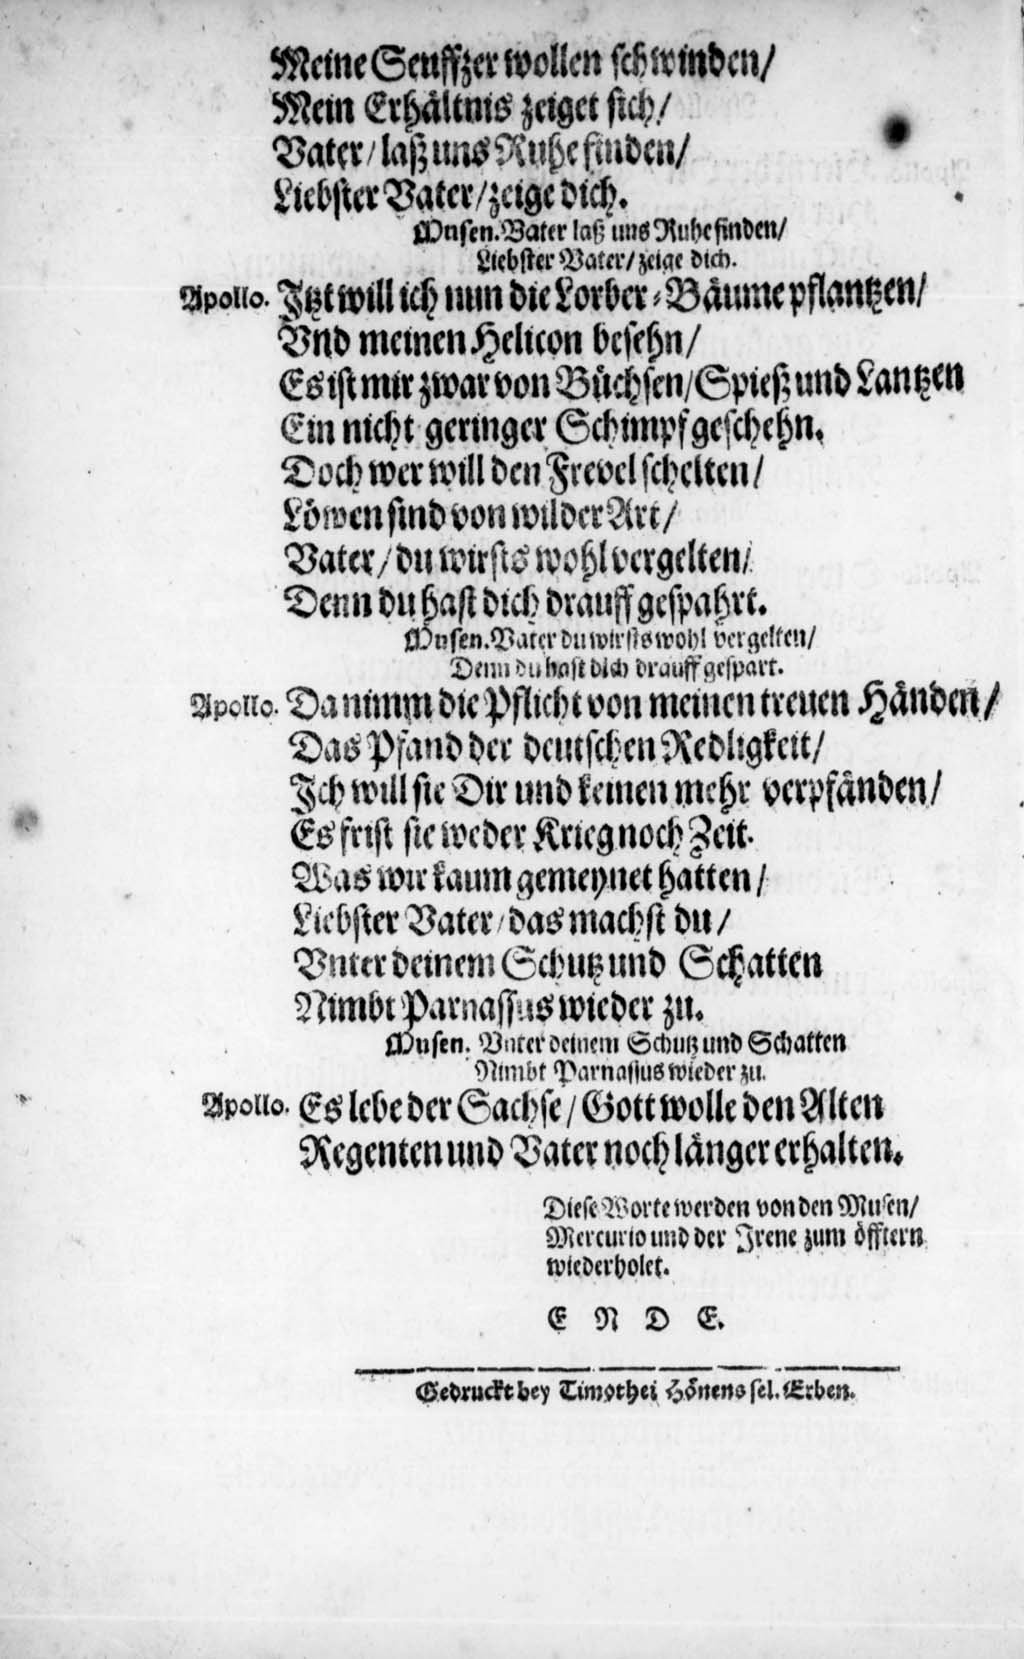 Meine Seuffzer wollen schwinden/
Mein Erhältnis zeiget sich/
Vater/ laß uns Ruhe finden/
Liebster Vater/ zeige dich.
Musen. Vater laß uns Ruhe finden/
Liebster Vater/ zeige dich.
Apollo. Jtzt will ich nun die Lorber-Bäume pflantzen/
Vnd meinen Helicon besehn/
Es ist mir zwar von Büchsen/ Spieß und Lantzen
Ein nicht geringer Schimpf geschehn.
Doch wer will den Frevel schelten/
Löwen sind von wilder Art/
Vater/ du wirsts wohl vergelten/
Denn du hast dich drauff gespahrt.
Musen. Vater du wirsts wohl vergelten/
Denn du hast dich drauff gespart.
Apollo. Da nimm die Pflicht von meinen treuen Händen/
Das Pfand der deutschen Redligkeit/
Jch will sie Dir und keinen mehr verpfänden/
Es frist sie weder Krieg noch Zeit.
Was wir kaum gemeynet hatten/
Liebster Vater/ das machst du/
Vnter deinem Schutz und Schatten
Nimbt Parnassus wieder zu.
Musen. Vnter deinem Schutz und Schatten
Nimbt Parnassus wieder zu.
Apollo. Es lebe der Sachse/ Gott wolle den Alten
Regenten und Vater noch länger erhalten.
Diese Worte werden von den Musen/
Mercurio und der Jrene zum öfftern
wiederholet.
E N D E.
Gedruckt bey Timothei Hönens sel. Erben.